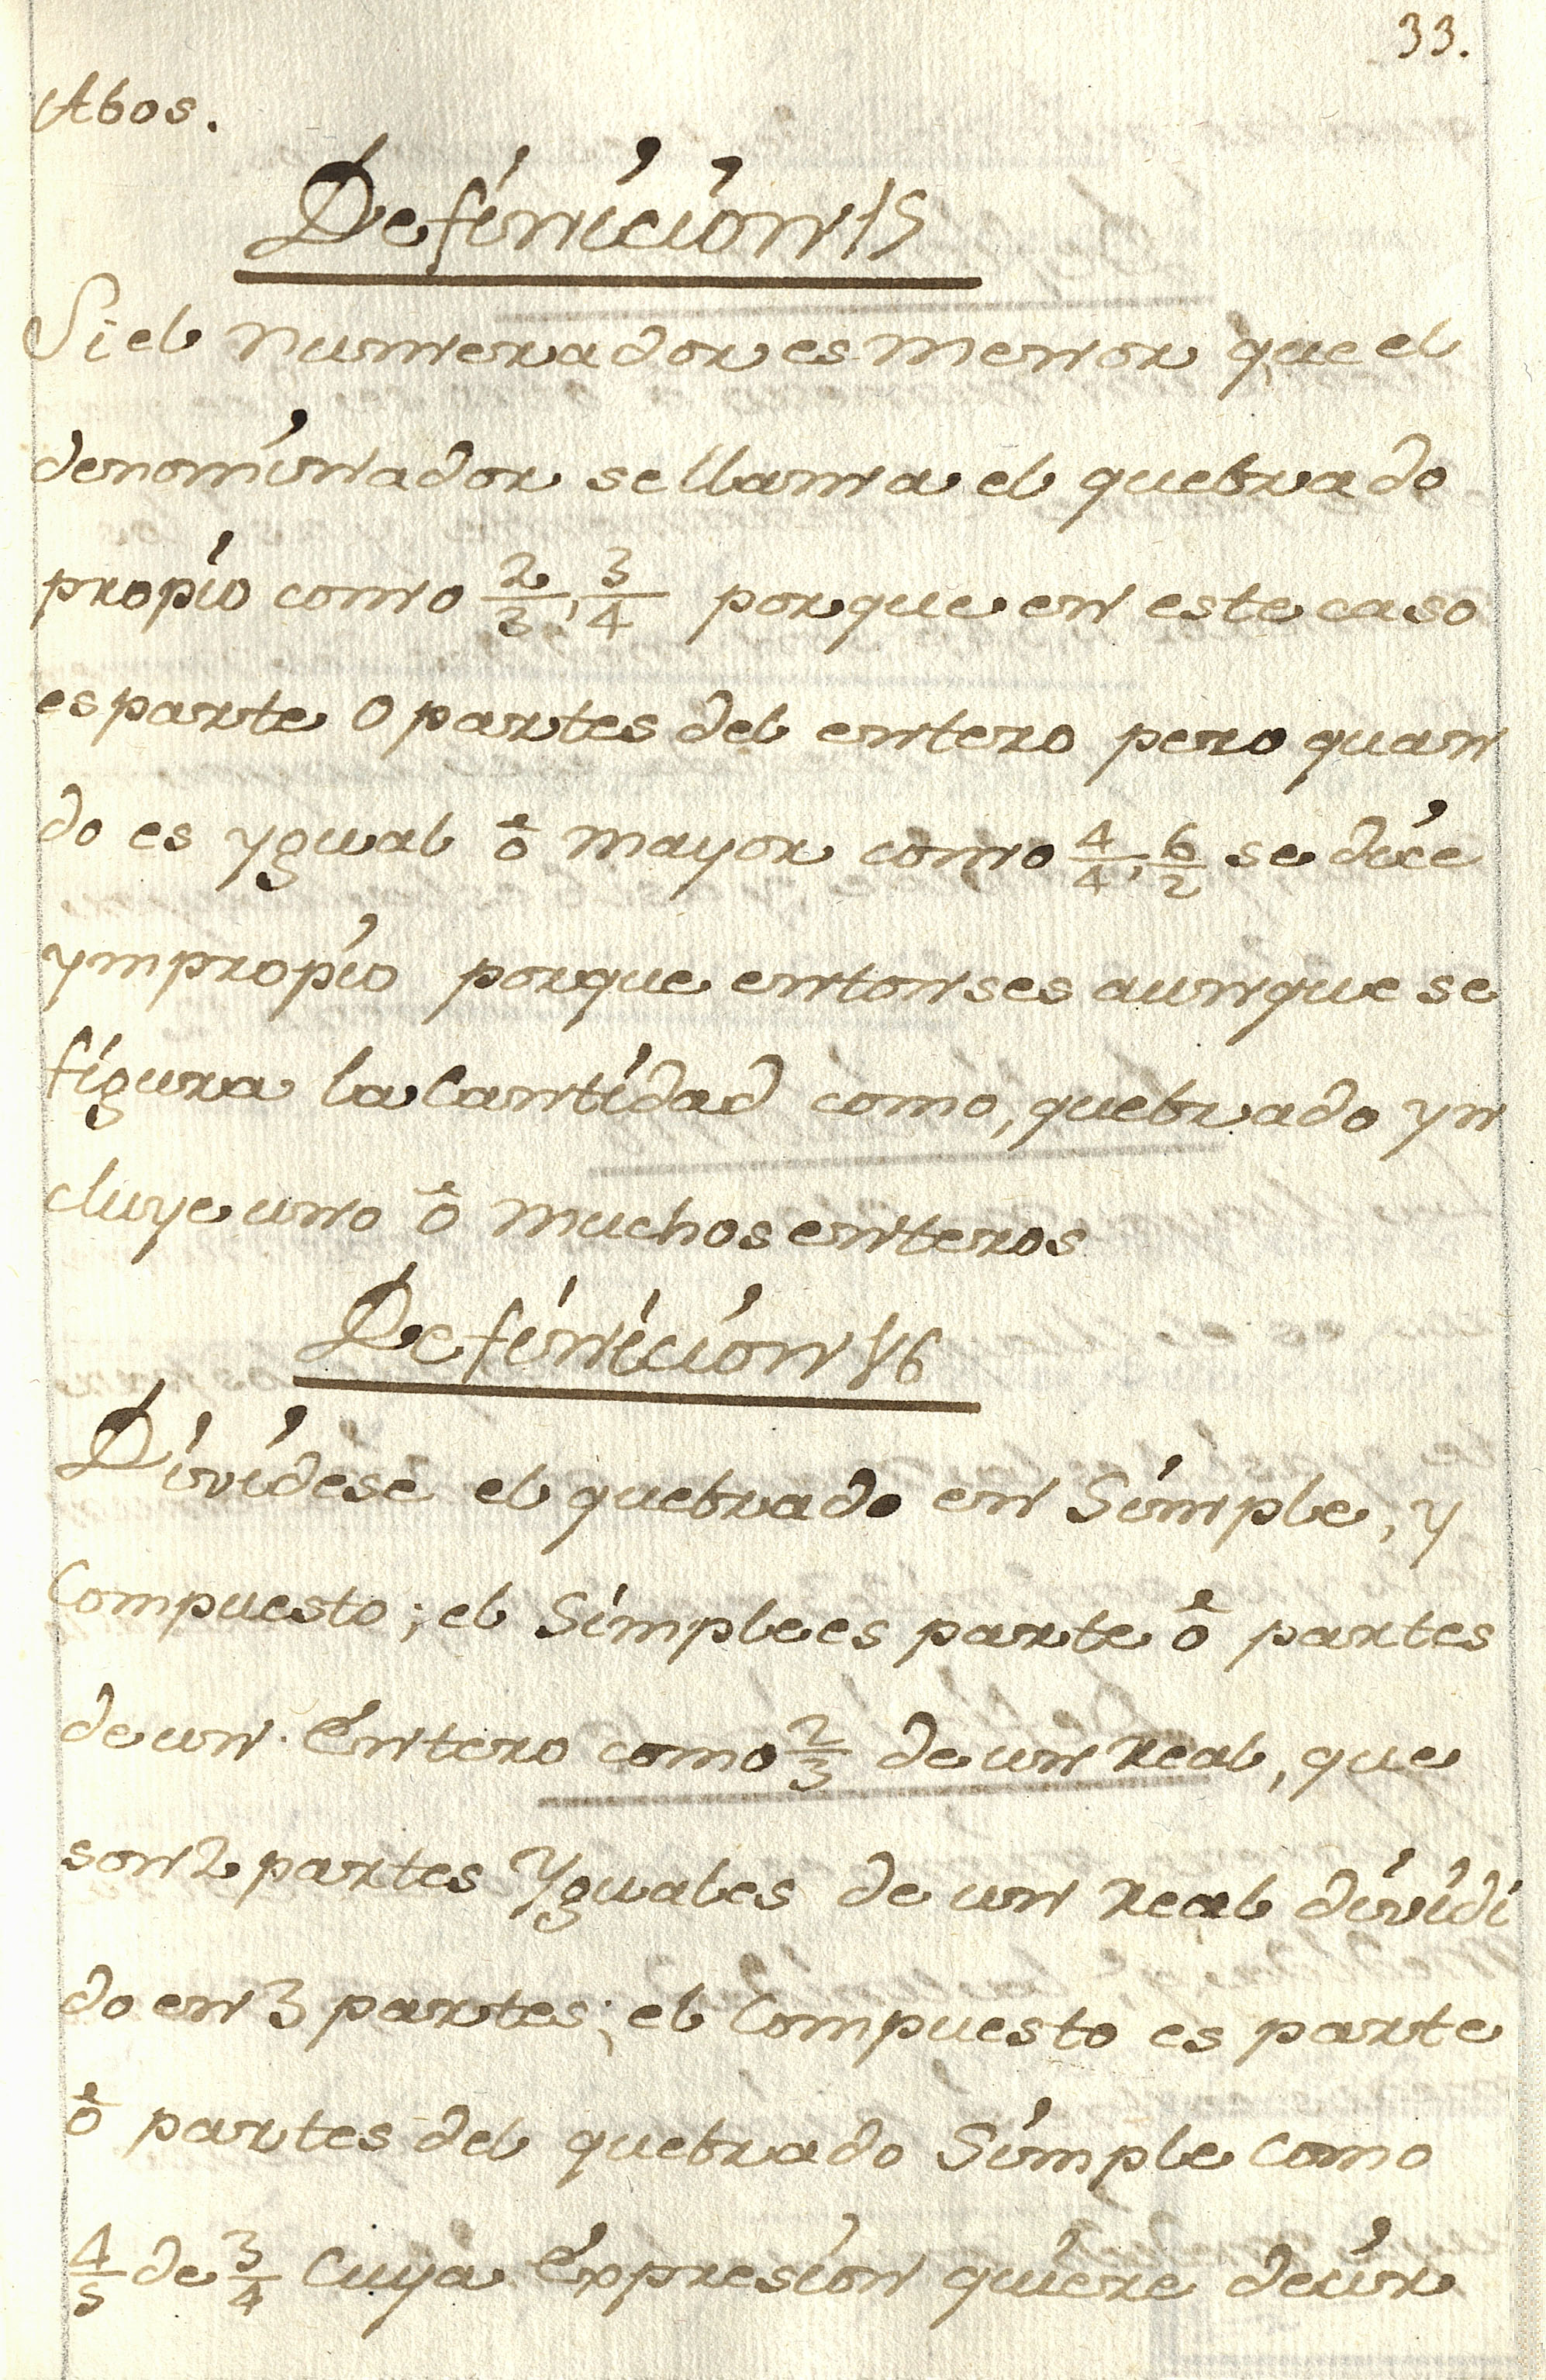 33.
Abos.
Definicion 15
Si el numerador es menor que el
denominador se llama el quebrado
propio como 2/3, 3/4 porque en este caso
es parte o partes del entero pero quan
do es ygual ó mayor como 4/4, 6/2 se dice
ympropio porque entonses aunque se
figura la Cantidad como, quebrado yn
cluye uno ó muchos enteros
Definicion 16
Dividese el quebrado en Simple, y
Compuesto; el Simple es parte ó partes
de un Entero como 2/3 de un Real, que
son 2 partes Yguales de un Real dividi
do en 3 partes; el Compuesto es parte
ó partes del quebrado Simple Como
4/5 de 3/4 Cuya Expresion quiere decir